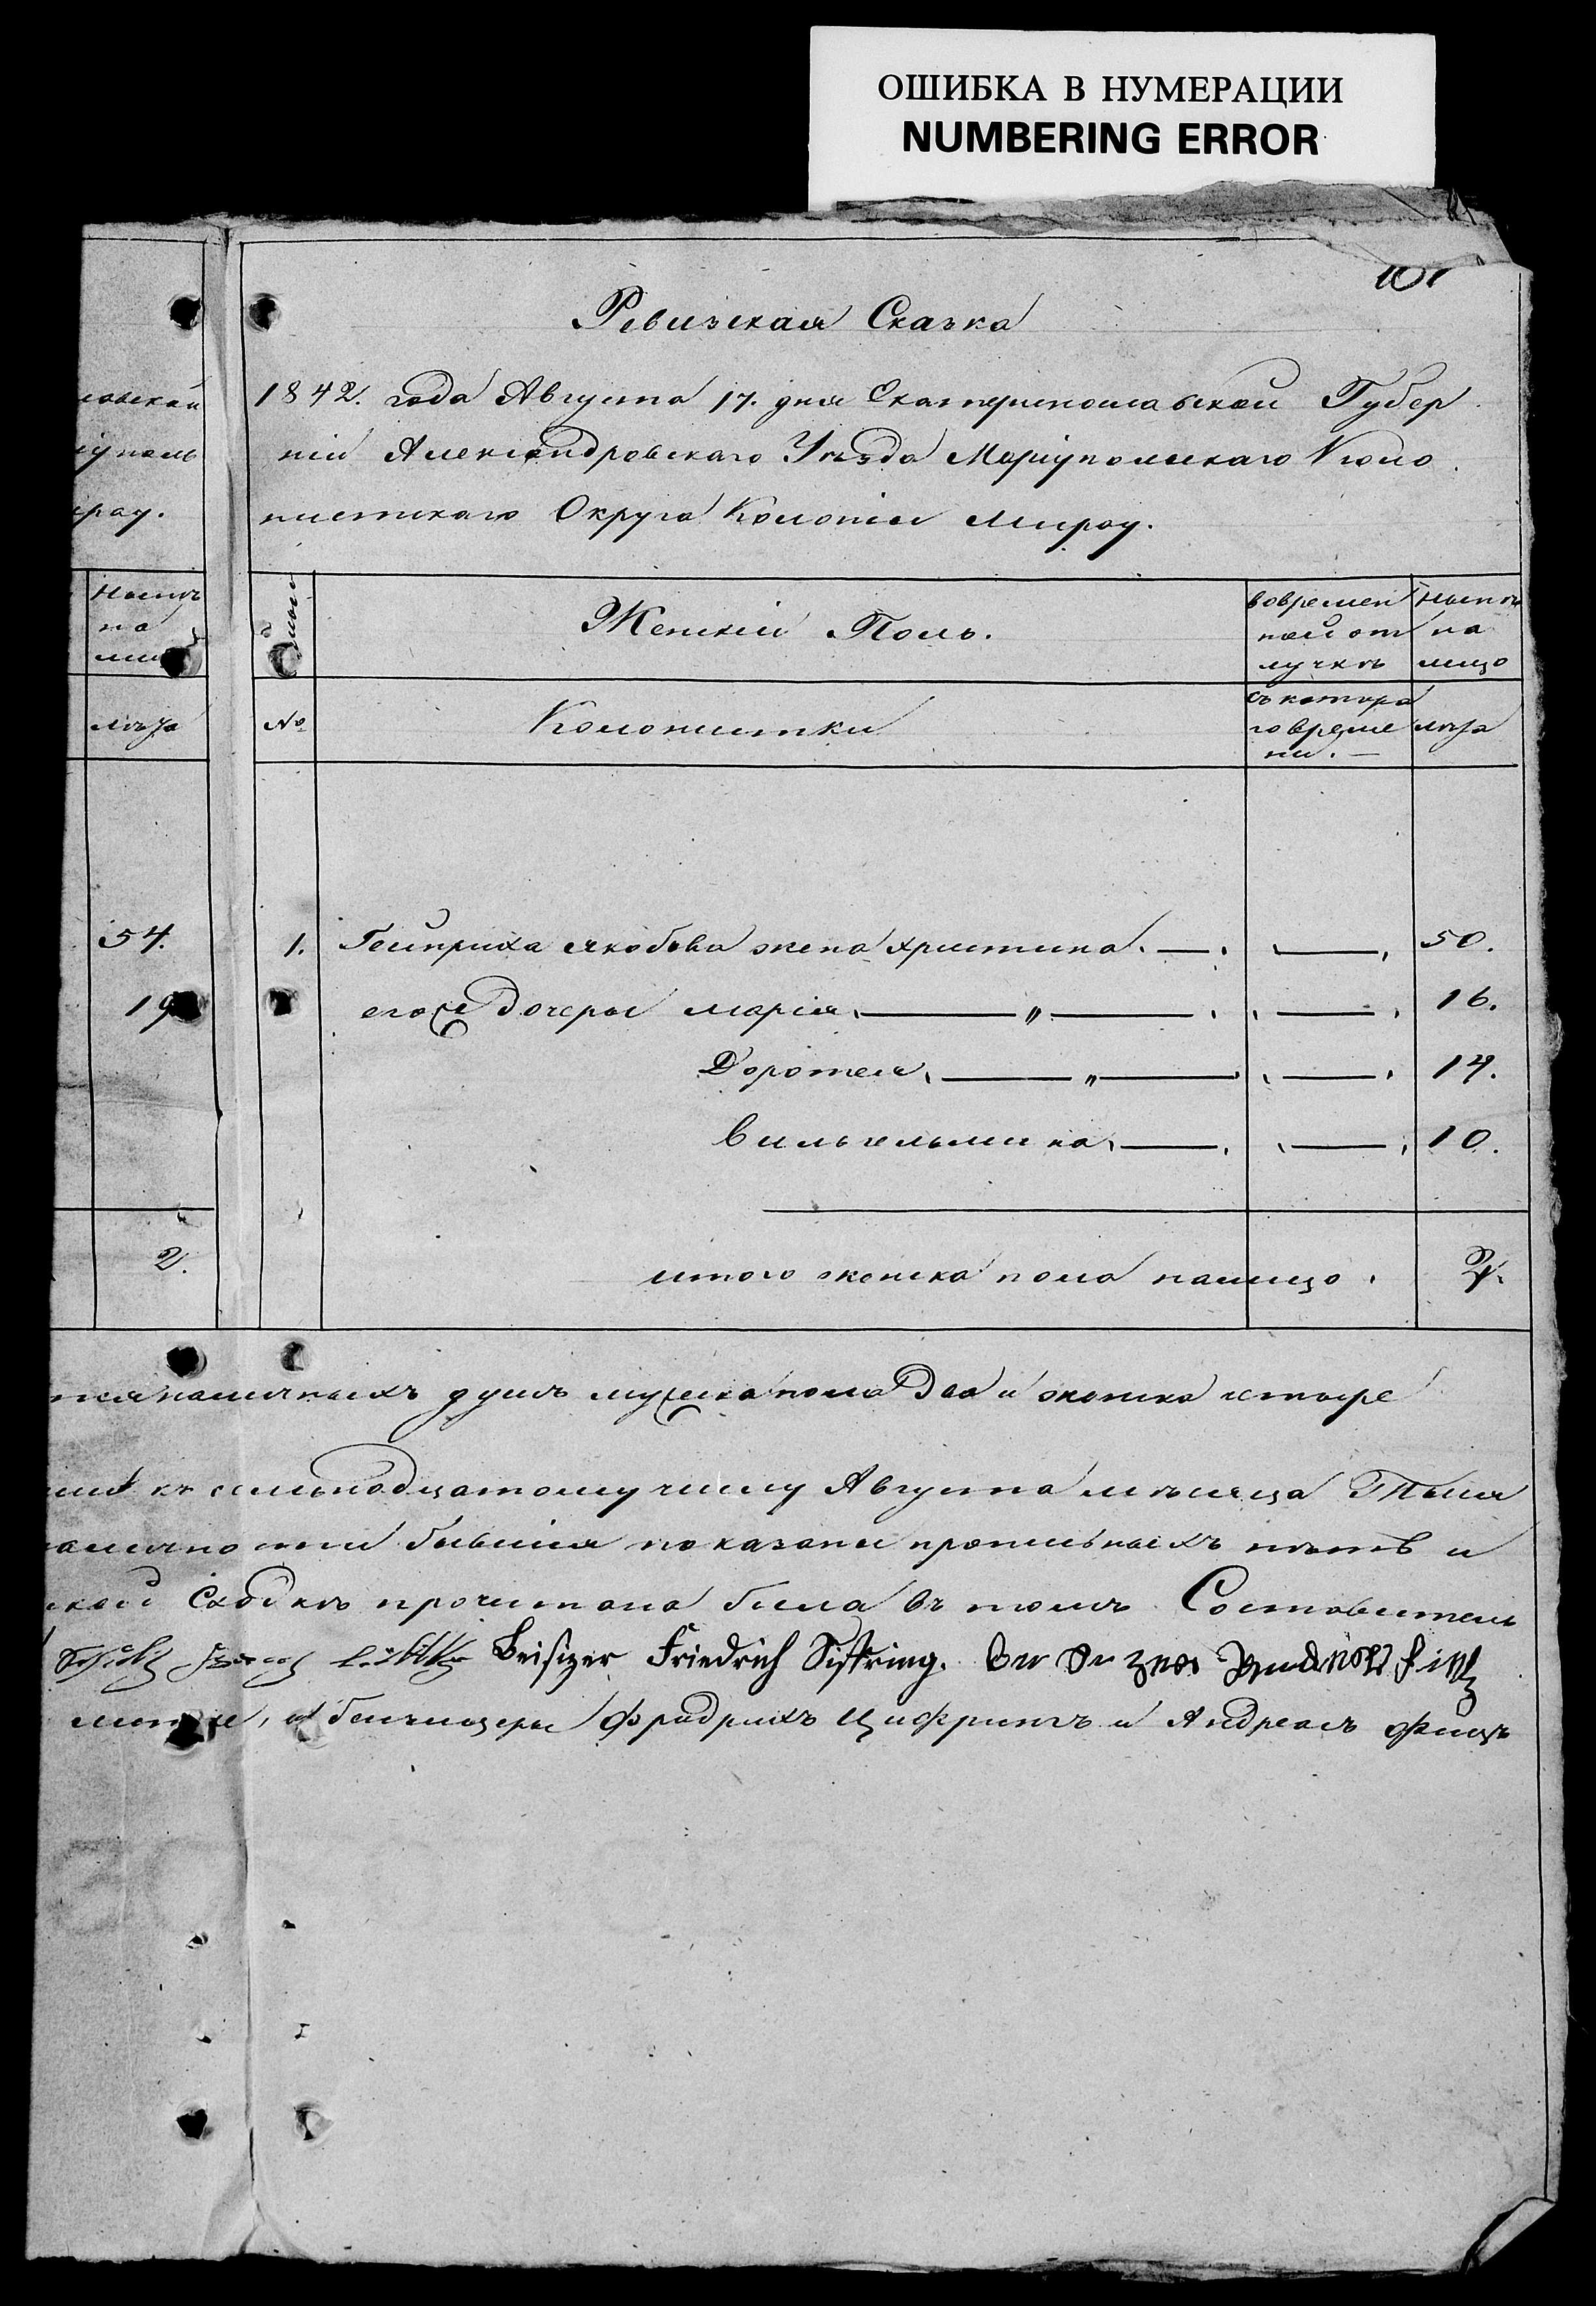 ОШИБКА В НУМЕРАЦИИ
NUMBERING ERROR
Ревизская Сказка
1842. года Августа 17. дня Екатеринославской Губер
ніи Александровскаго Уѣзда Маріупольскаго Коло
нистскаго Округа Колоніи Мирау.
Женскій Полъ.
вовремен
ной от
лучкѣ
на
лицо
№
Колонистки
съ котора
го време
ни. —
лѣта
лѣта
54.
1. Гейнриха Якобова жена Христина. — 50.
19
его же дочеры Марія, — " — 16.
Доротея, — " — 14.
Вильгельмина, — 10.
2.
итого женска пола налицо. 4.
наличныхъ душъ мужеска пола два и женска четыре
къ семьнадцатому числу Августа мѣсяца
бывшія показаны прописныхъ нѣтъ и
Сходкѣ прочитана была въ томъ Составитель
Beisizer Friedrich Siffring.
и бейзицеры Фридрихъ Цифрингъ и Андреасъ Финцъ